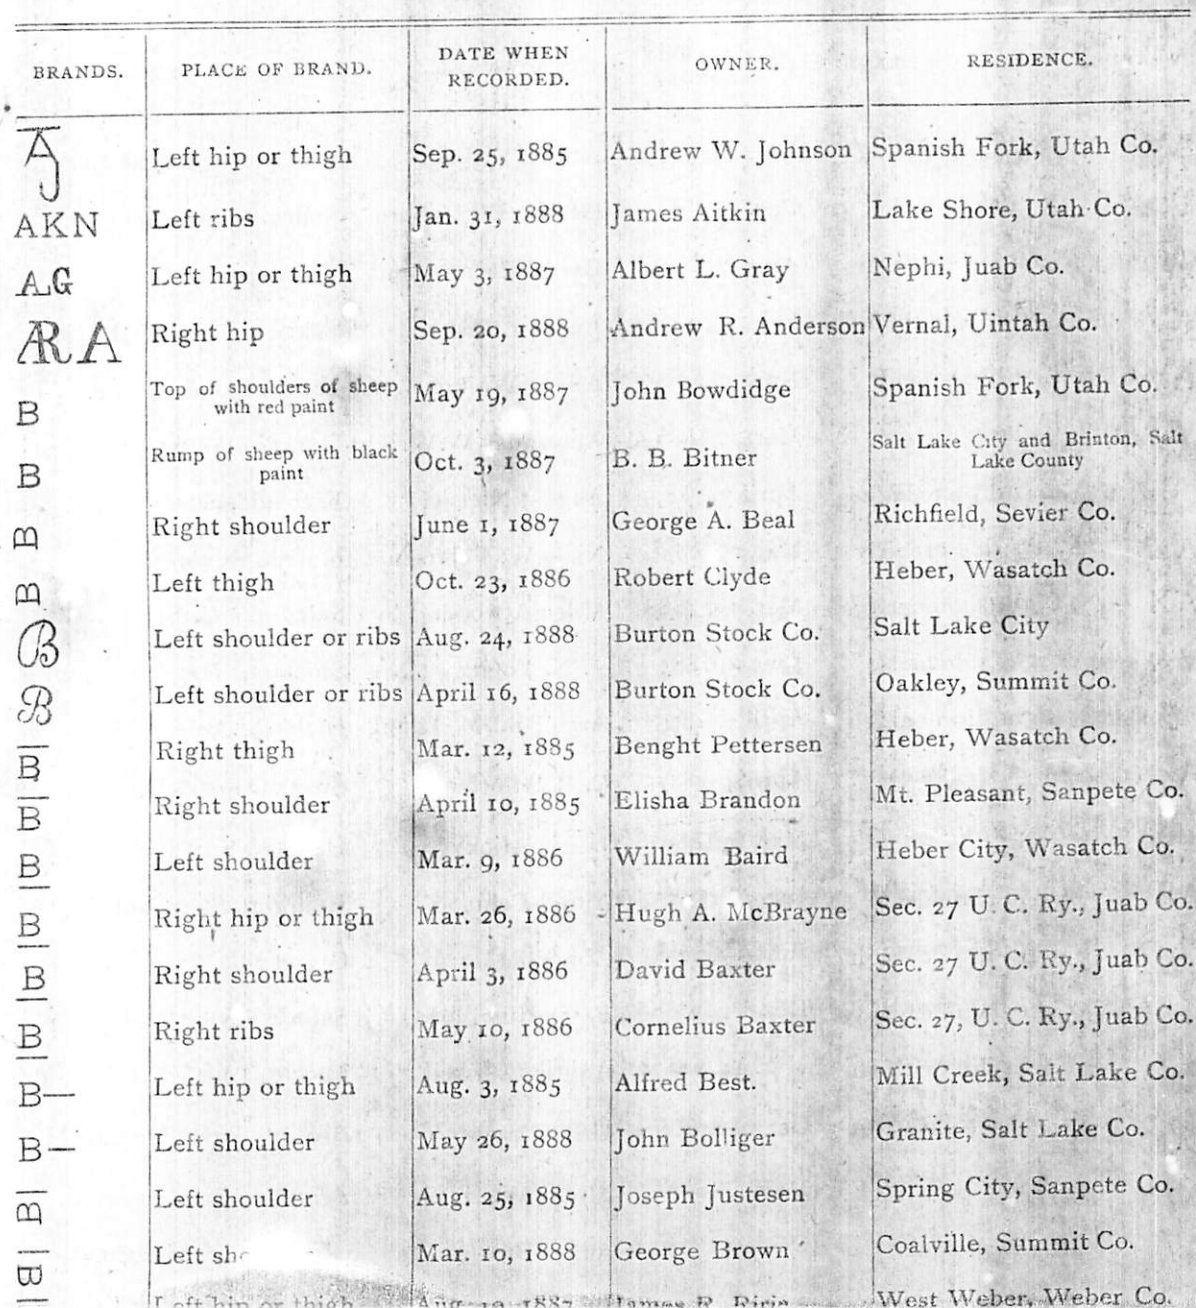 BRANDS. PLACE OF BRAND. DATE WHEN RECORDED. OWNER. RESIDENCE.
AJ Left hip or thigh Sep. 25, 1885 Andrew W. Johnson Spanish Fork, Utah Co.
AKN Left ribs Jan. 31, 1888 James Aitkin Lake Shore, Utah Co.
AG Left hip or thigh May 3, 1887 Albert L. Gray Nephi, Juab Co.
ARA Right hip Sep. 20, 1888 Andrew R. Anderson Vernal, Uintah Co.
B Top of shoulders of sheep with red paint May 19, 1887 John Bowdidge Spanish Fork, Utah Co.
B Rump of sheep with black paint Oct. 3, 1887 B. B. Bitner Salt Lake City and Brinton, Salt Lake County
B Right shoulder June 1, 1887 George A. Beal Richfield, Sevier Co.
B Left thigh Oct. 23, 1886 Robert Clyde Heber, Wasatch Co.
B Left shoulder or ribs Aug. 24, 1888 Burton Stock Co. Salt Lake City
B Left shoulder or ribs April 16, 1888 Burton Stock Co. Oakley, Summit Co.
B Right thigh Mar. 12, 1885 Benght Pettersen Heber, Wasatch Co.
B Right shoulder April 10, 1885 Elisha Brandon Mt. Pleasant, Sanpete Co.
B Left shoulder Mar. 9, 1886 William Baird Heber City, Wasatch Co.
B Right hip or thigh Mar. 26, 1886 Hugh A. McBrayne Sec. 27 U. C. Ry., Juab Co.
B Right shoulder April 3, 1886 David Baxter Sec. 27 U. C. Ry., Juab Co.
B Right ribs May 10, 1886 Cornelius Baxter Sec. 27, U. C. Ry., Juab Co.
B— Left hip or thigh Aug. 3, 1885 Alfred Best. Mill Creek, Salt Lake Co.
B— Left shoulder May 26, 1888 John Bolliger Granite, Salt Lake Co.
B Left shoulder Aug. 25, 1885 Joseph Justesen Spring City, Sanpete Co.
B Left Mar. 10, 1888 George Brown Coalville, Summit Co.
Left hip or thigh West Weber, Weber Co.